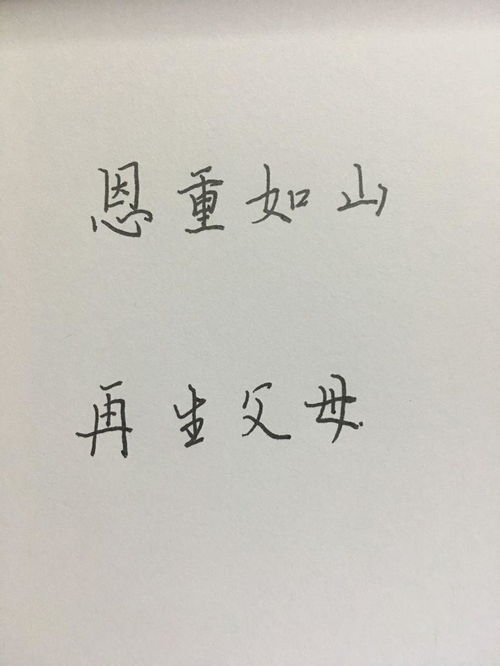 恩重如山
再生父母